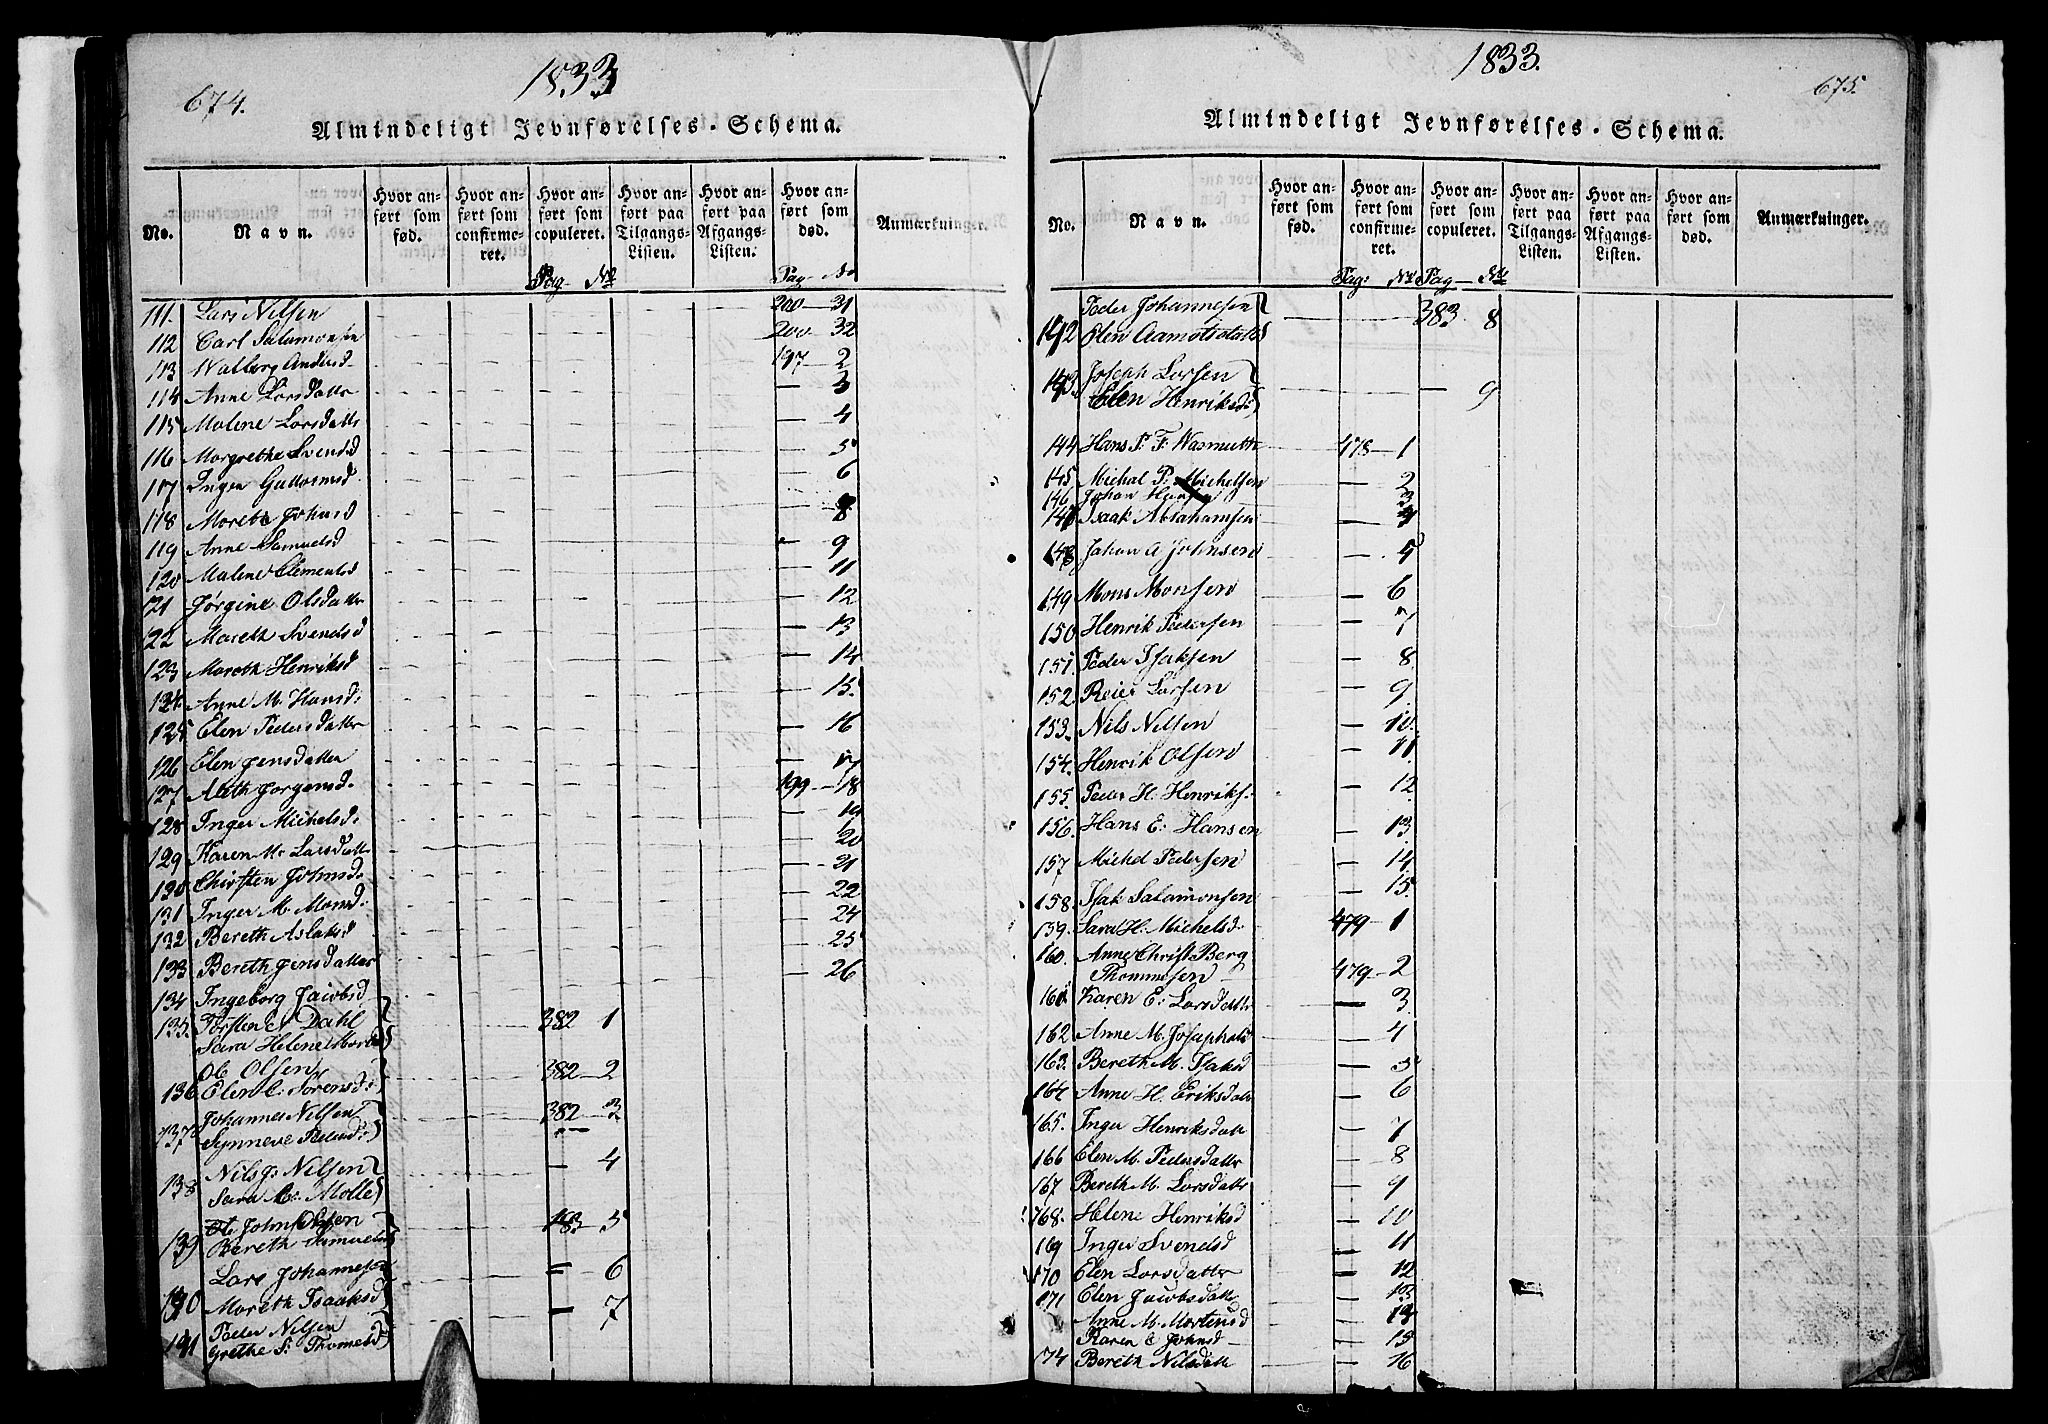 674.
1833
Almindeligt Jevnførelses-Schema.
No.
Navn.
Hvor anført som fød.
Hvor anført som confirmeret.
Hvor anført som copuleret.
Hvor anført paa Tilgangs-Listen.
Hvor anført paa Afgangs-Listen.
Hvor anført som død.
Anmærkninger.
Pag. No
Pag. No
111. Lars Nilsen 200 31
112 Carl Salamonsen 200 32
113 Walborg Andersd 197 2
114 Anne Larsdattr — 3
115 Malene Larsdattr — 4
116 Margrethe Svendsd — 5
117 Inger Guttormsd — 6
118 Mareth Johnsd — 8
119 Anne Samuelsd — 9
120 Malene Clementsd — 11
121 Jørgine Olsdatter — 12
122 Mareth Svendsd — 13
123 Mareth Henriksd — 14
124 Anne M. Hansd: — 15.
125 Elen Pedersdatter — 16
126 Elen Jensdatter — 17
127 Aleth Jorgensd. 199 — 18
128 Inger Michelsd: — 19
129 Karen M. Larsdattr — 20
130 Chirsten Johnsd. — 21
131 Inger M. Monsd. — 22
132 Bereth Aslaksd — 24
133 Bereth Jensdatter — 25
134 Ingeborg Jacobsd — 26
135. Torsten Dahl
Sara Helene 382 1
Ole Olsen
136 Elen C. Sørensd: 382 — 2
Johannes Nilsen
137 Synneve Pedersd: 382 — 3
Nils J. Nilsen
138 Sara C. Molle — 4
John Olsen
139 Bereth Samuelsd 383 — 5
Lars Johannesen
140 Mareth Isaaksd — 6
Peder Nilsen
141 Grethe S. Thomesd — 7
1833.
675.
Almindeligt Jevnførelses-Schema.
No.
Navn.
Hvor anført som fød.
Hvor anført som confirmeret.
Hvor anført som copuleret.
Hvor anført paa Tilgangs-Listen.
Hvor anført paa Afgangs-Listen.
Hvor anført som død.
Anmærkninger.
Pag: No Pag — No
Peder Johannesen
142 Elen Aamotsdattr 383 8
143. Joseph Larsen
Elen Henriksd: — 9
144 Hans P. F. Wasmuth 478 — 1
145 Michal P. Michelsen — 2
146 Johan Hansen — 3
147 Isaak Abrahamsen — 4
148 Johan A Johnsen — 5
149 Mons Monsen — 6
150 Henrik Pedersen — 7
151. Peder Isaksen — 8
152. Reier Larsen — 9
153. Nils Nilsen — 10
154. Henrik Olsen — 11
155. Peder H. Henriks. — 12
156. Hans E. Hansen — 13
157 Michel Pedersen — 14
158. Isak Salamonsen — 15
159. Sara H. Michelsd. 479 — 1
160. Anne Christ Berg
Thommesen 479 — 2
161 Karen E. Larsdattr — 3
162 Anne M. Josephsd — 4
163. Bereth M. Isaksd — 5
164 Anne H. Eriksdattr — 6
165. Inger Henriksdattr — 7
166 Elen M. Pedersdattr — 8
167 Bereth M. Larsdattr — 9
168. Helene Henriksd — 10
169 Inger Svendsd — 11
170 Elen Larsdattr — 12
171 Elen Jacobsdattr — 13
Anne M. Mortensd — 14
Karen E Johnsd — 15
174 Bereth Nilsdattr — 16